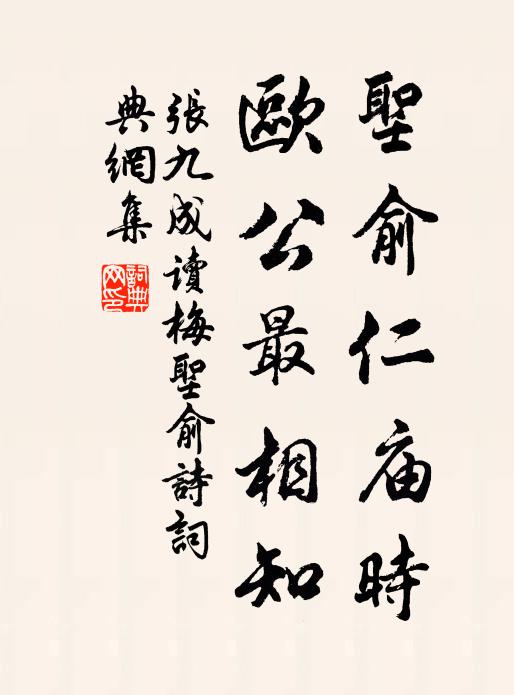 聖俞仁庙時
歐公最相知
張九成讀梅聖俞詩詞
典網集
詞典网印